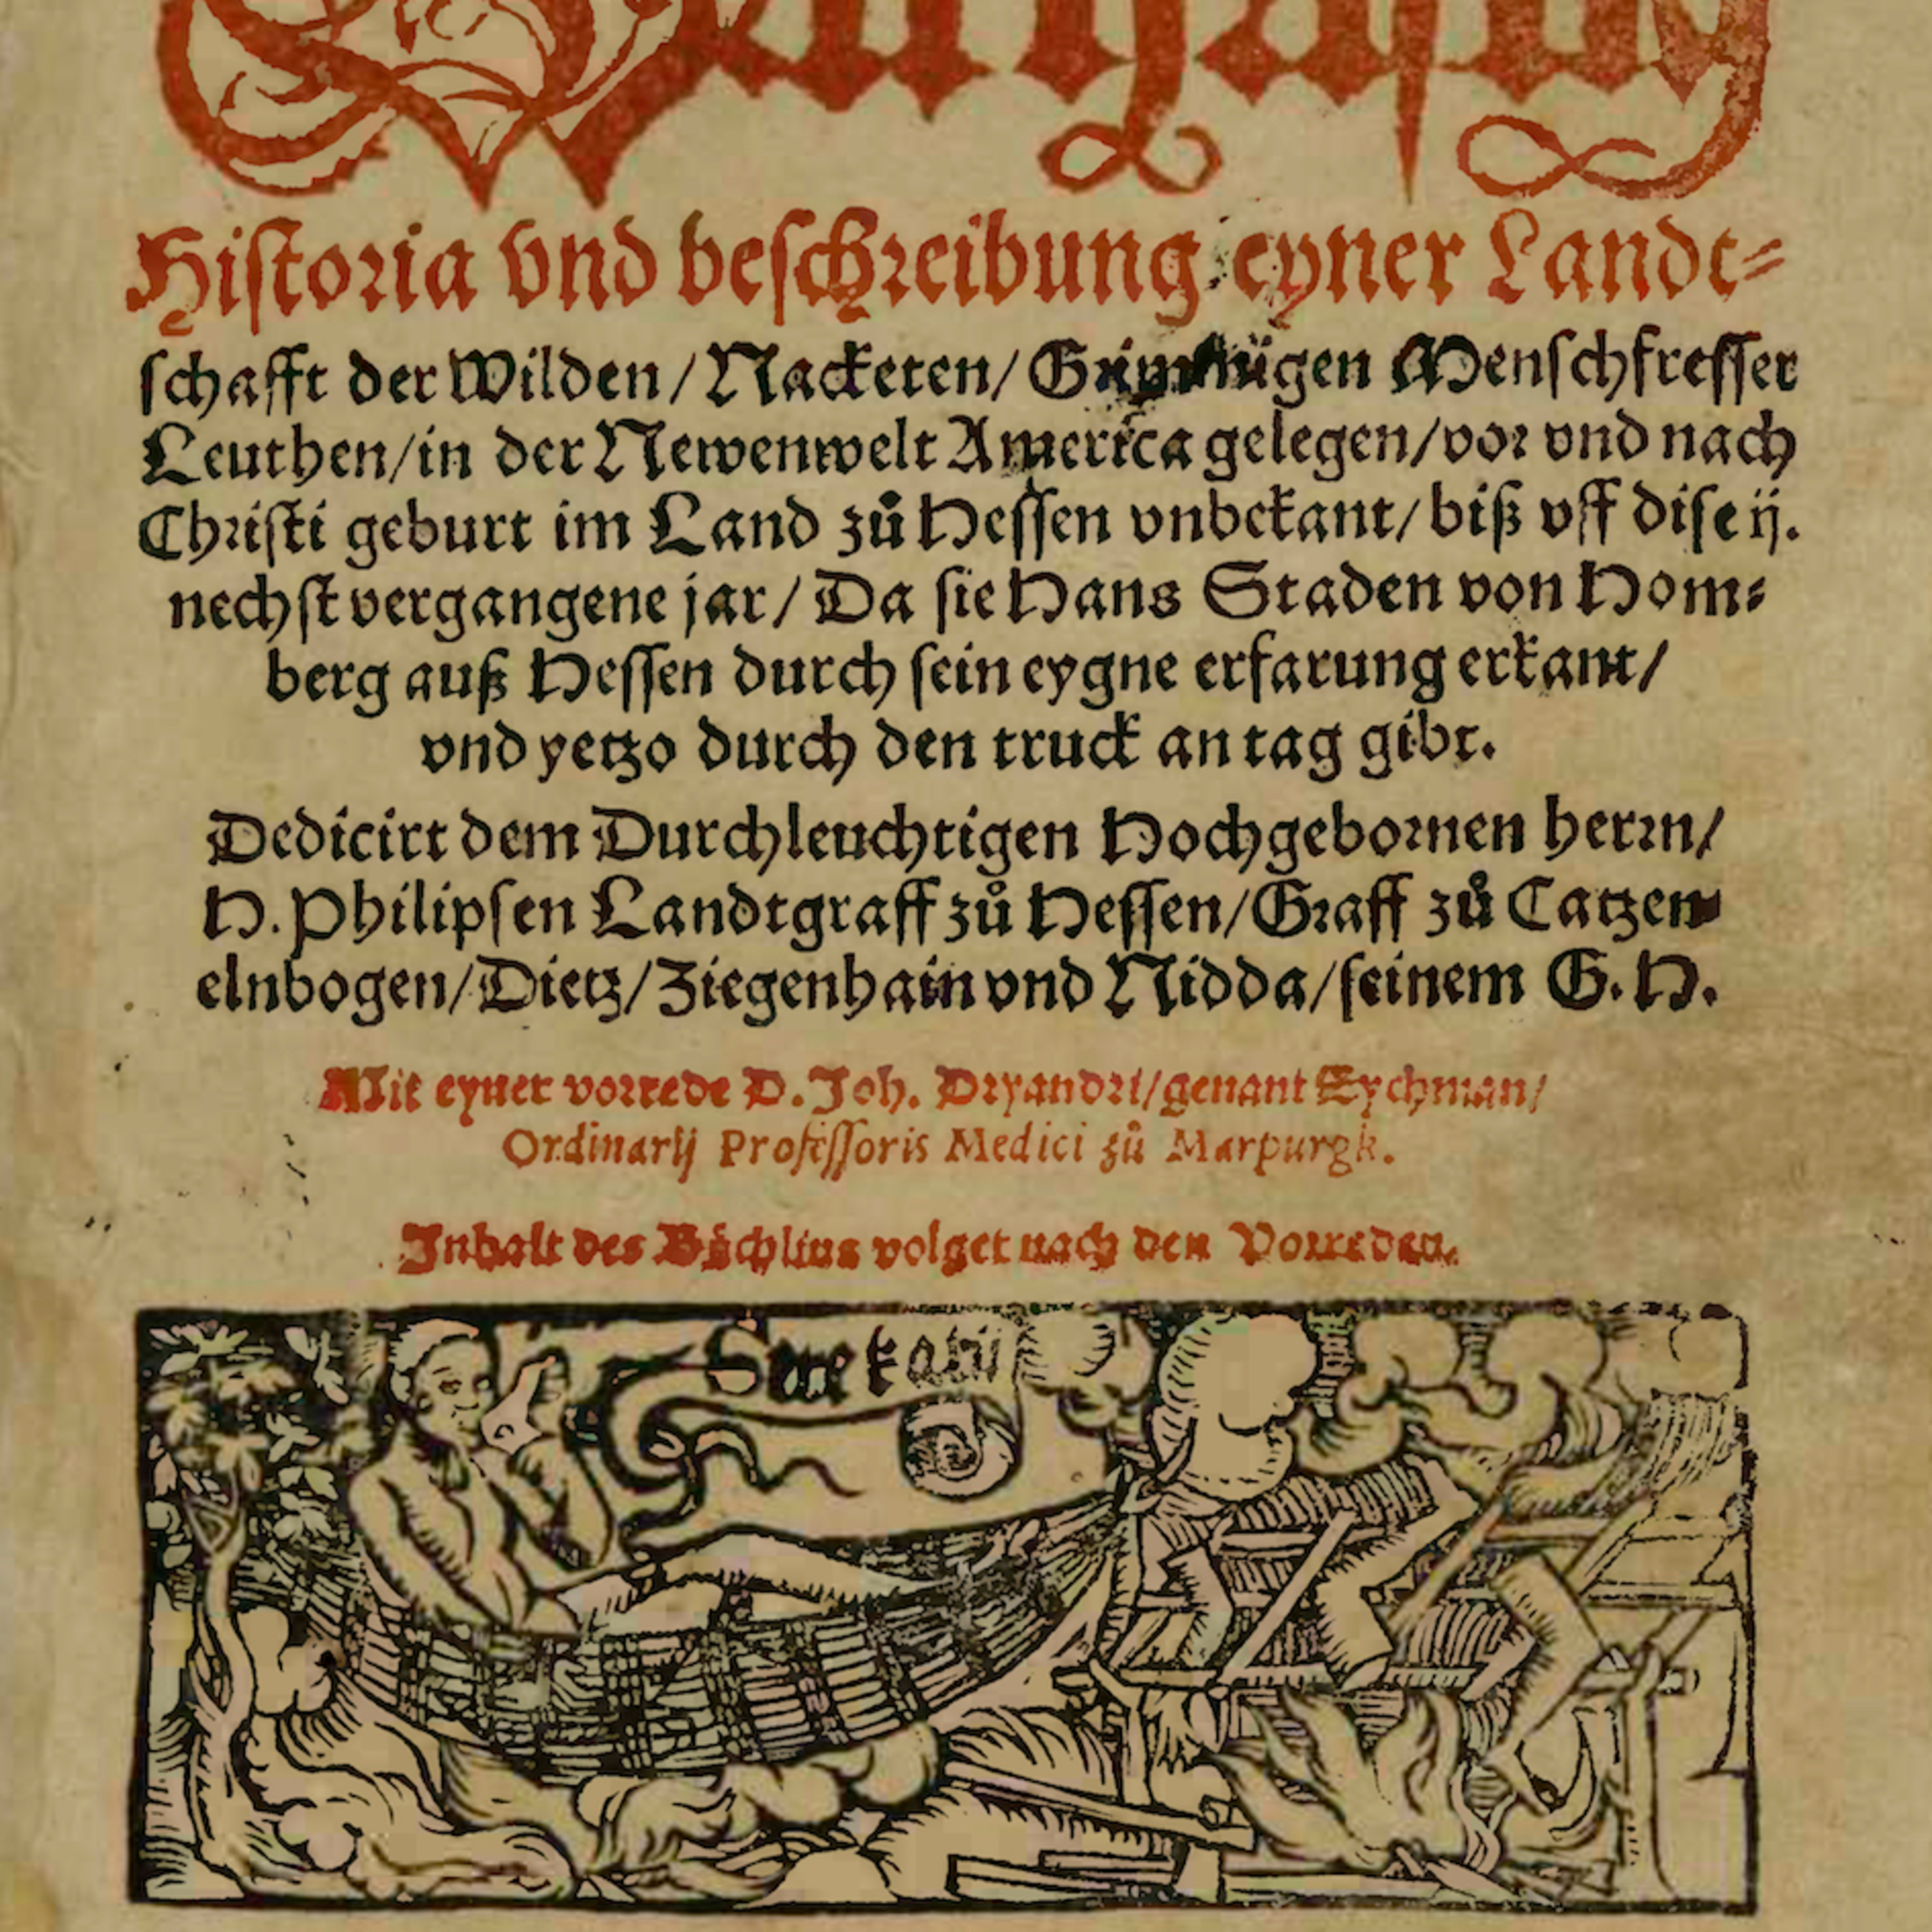 Warhaftig
Historia vnd beschreibung eyner Landt-
schafft der Wilden/Nacketen/Grimmigen Menschfresser
Leuthen/in der Newenwelt America gelegen/vor vnd nach
Christi geburt im Land zů Hessen vnbekant/biß vff dise ij.
nechst vergangene jar/Da sie Hans Staden von Hom-
berg auß Hessen durch sein eygne erfarung erkant/
vnd yetzo durch den truck an tag gibt.
Dedicirt dem Durchleuchtigen Hochgebornen herrn/
H. Philipsen Landtgraff zů Hessen/Graff zů Catzen-
elnbogen/Dietz/Ziegenhain vnd Nidda/seinem G. H.
Mit eyner vorrede D. Joh. Dryandri/genant Eychman/
Ordinarij Professoris Medici zů Marpurgk.
Inhalt des Büchlins volget nach den Vorreden.